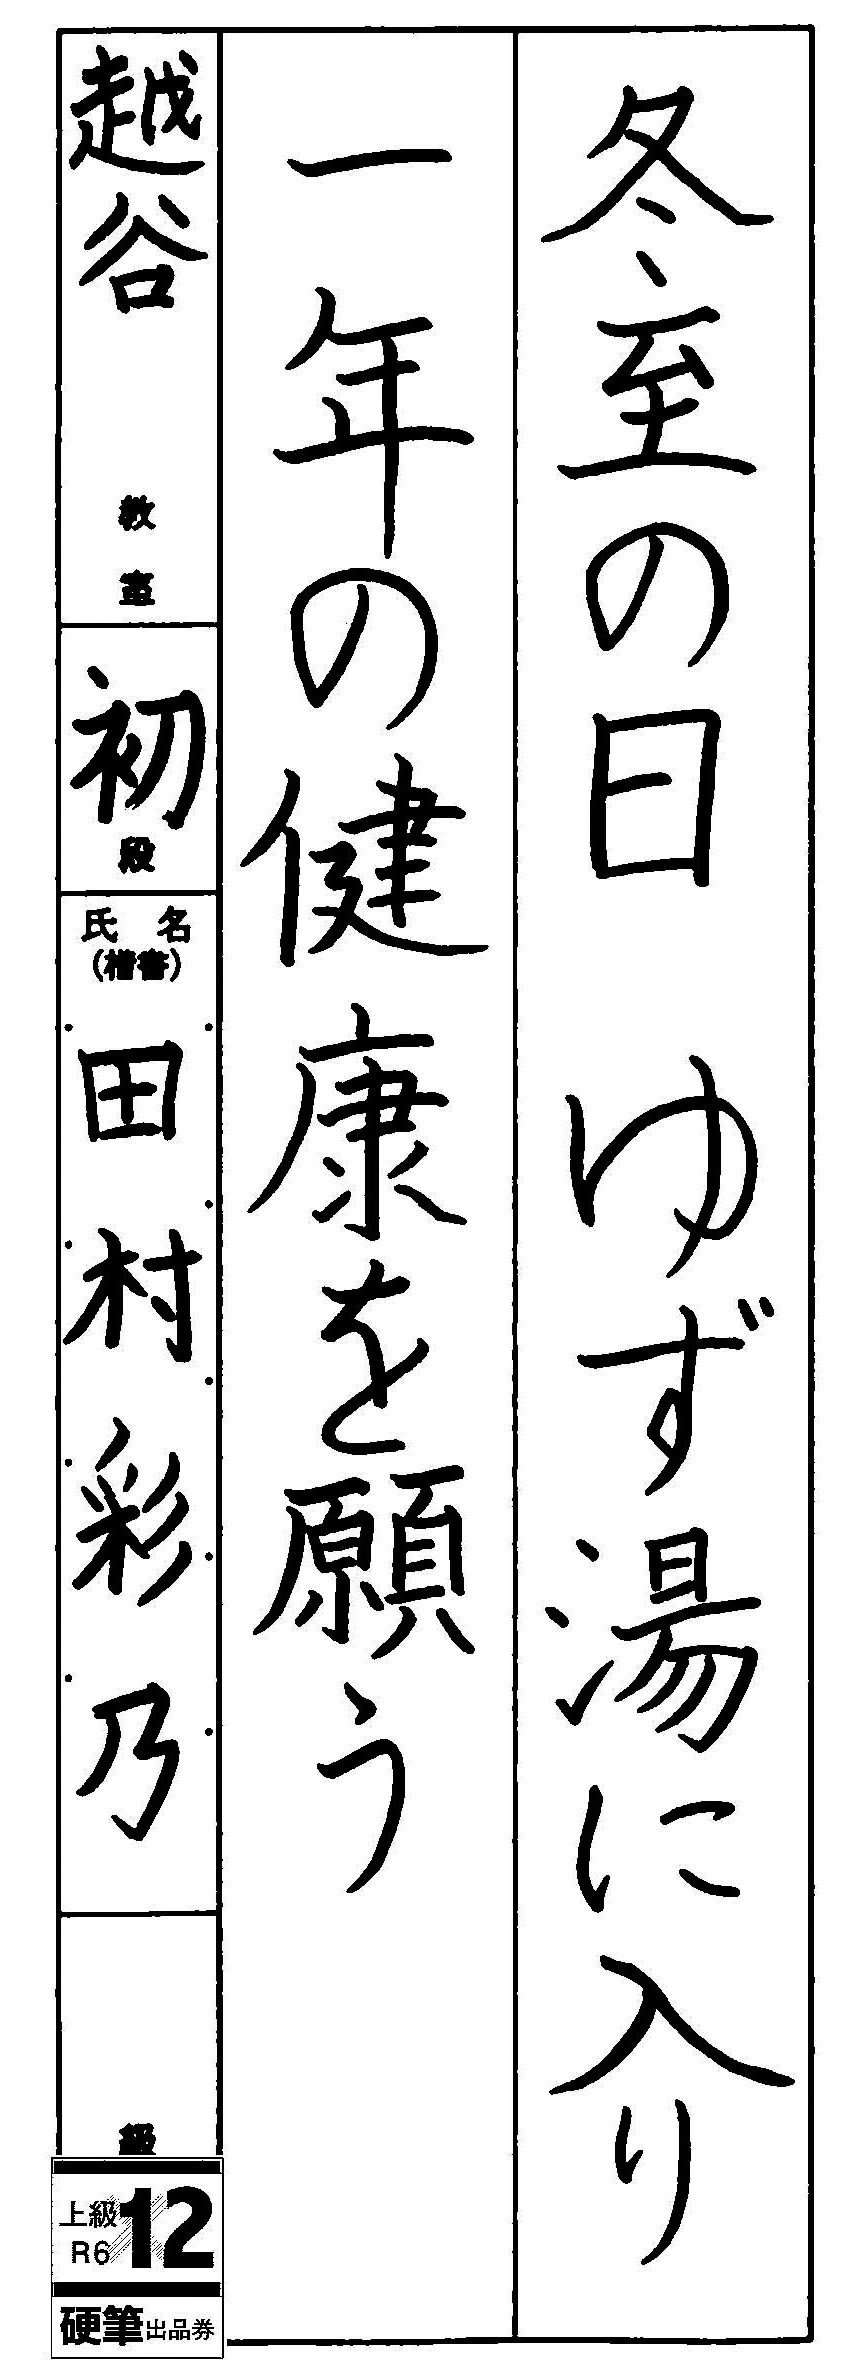 冬至の日　ゆず湯に入り
一年の健康を願う
越谷
教室
初
段
氏　名
（楷書）
田村彩乃
級
上級
R6
12
硬筆出品券